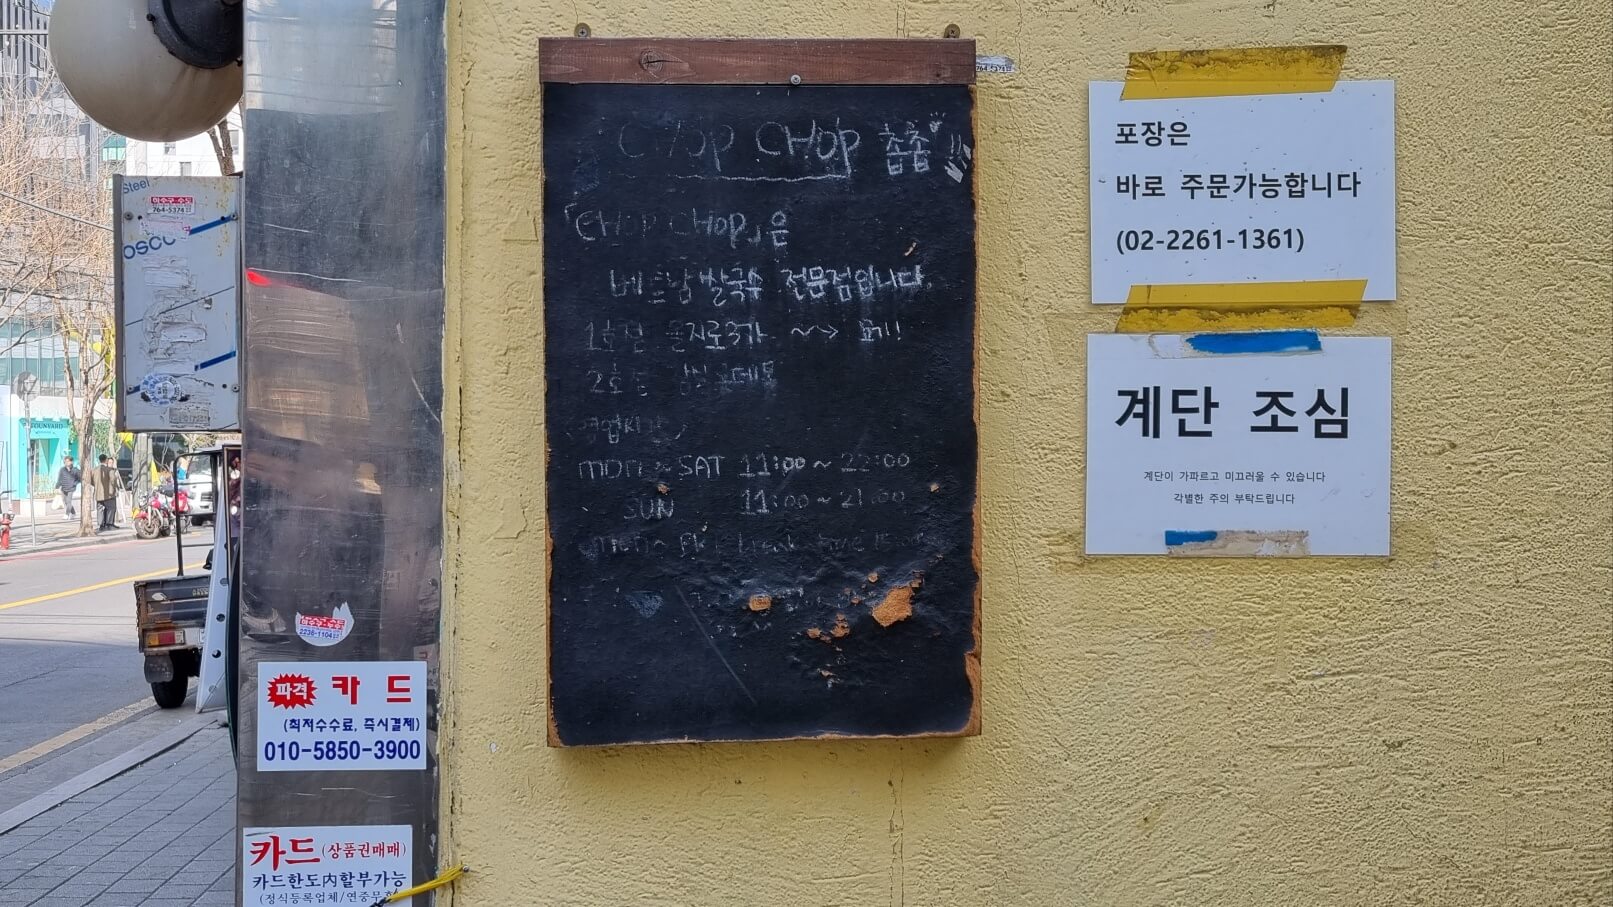 Steel
하수구·수도
764-5374
OSCO
764-5374
CHOP CHOP 촙촙 !!!
「CHOP CHOP」은
베트남 쌀국수 전문점입니다.
1호점 을지로3가 ~→ 요기!!
2호점
영업시간
MON ~ SAT 11:00 ~ 22:00
SUN 11:00 ~ 21:00
break time
포장은
바로 주문가능합니다
(02-2261-1361)
계단 조심
계단이 가파르고 미끄러울 수 있습니다
각별한 주의 부탁드립니다
하수구·수도
2236-1104
파격 카드
(최저수수료, 즉시결제)
010-5850-3900
카드(상품권매매)
카드한도內할부가능
(정식등록업체/연중무휴